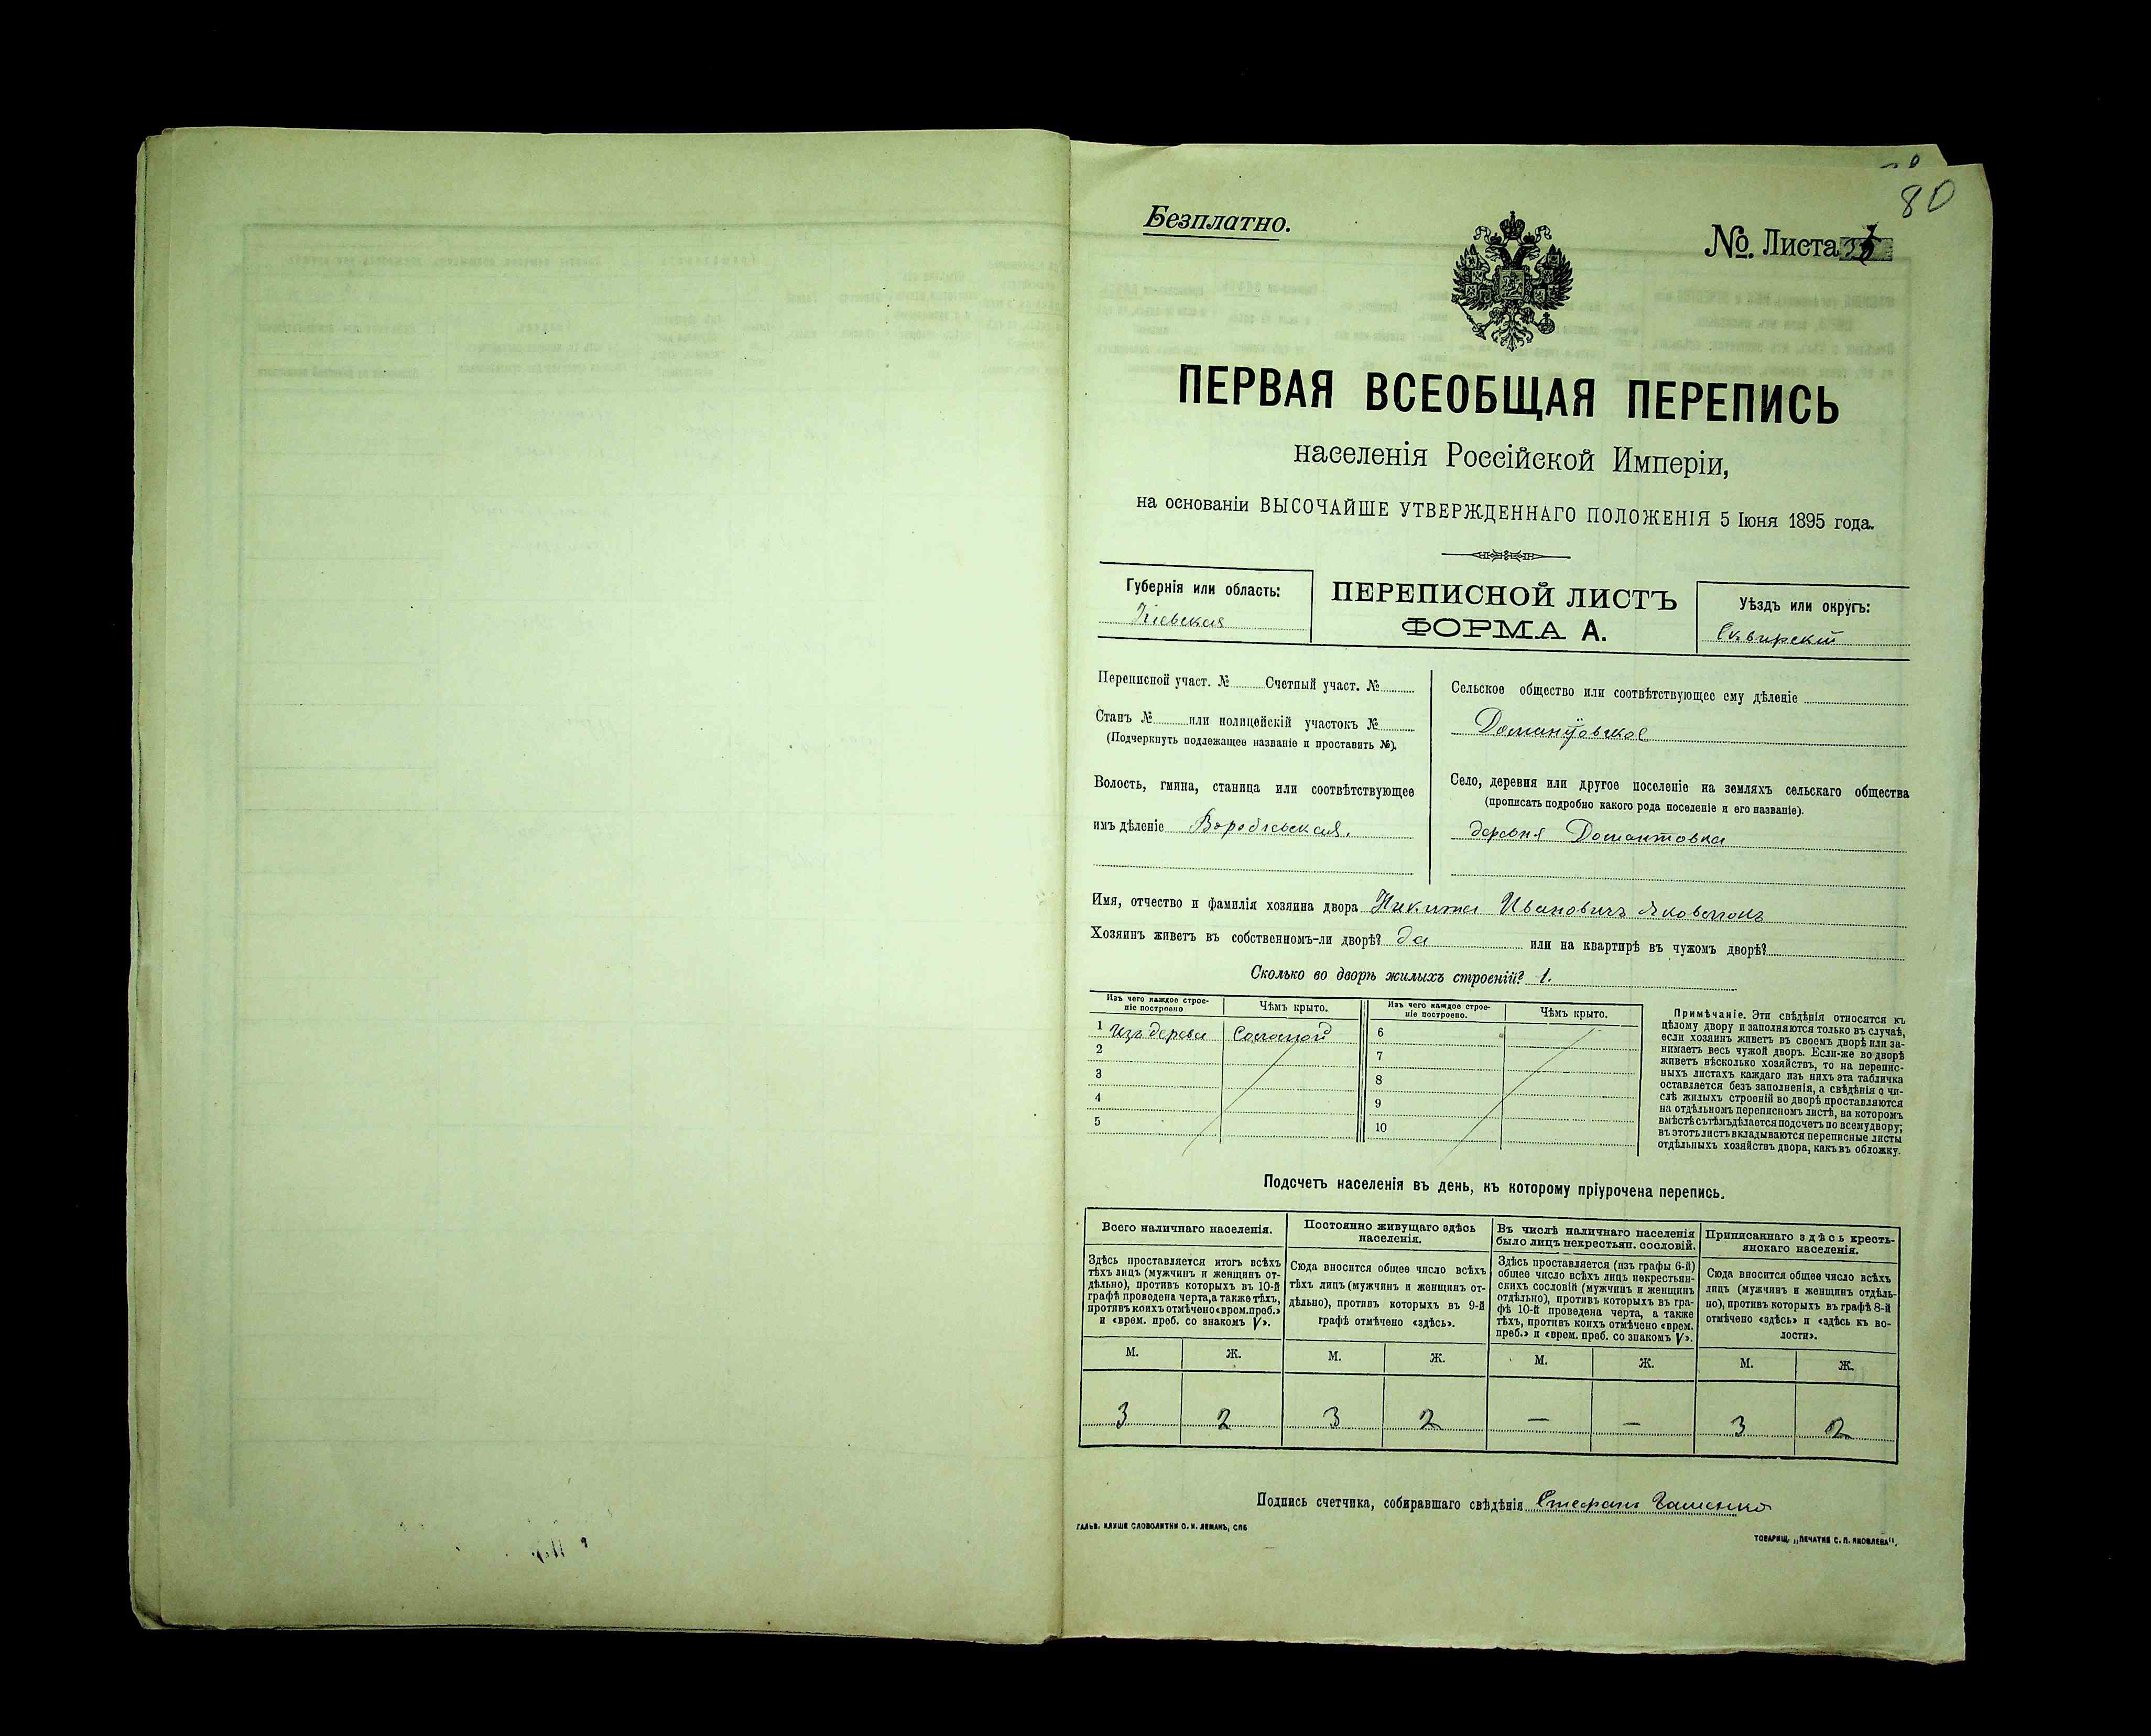 80
Безплатно.
№. Листа
ПЕРВАЯ ВСЕОБЩАЯ ПЕРЕПИСЬ
населенія Россійской Имперіи,
на основаніи ВЫСОЧАЙШЕ УТВЕРЖДЕННАГО ПОЛОЖЕНІЯ 5 Іюня 1895 года.
Губернія или область:
Кіевская
ПЕРЕПИСНОЙ ЛИСТЪ
ФОРМА А.
Уѣздъ или округъ:
Сквирскій
Переписной участ. № Счетный участ. №
Станъ № или полицейскій участокъ №
(Подчеркнуть подлежащее названіе и проставить №).
Волость, гмина, станица или соотвѣтствующее
имъ дѣленіе
Сельское общество или соотвѣтствующее ему дѣленіе
Село, деревня или другое поселеніе на земляхъ сельскаго общества
(прописать подробно какого рода поселеніе и его названіе).
деревня Домантовка
Имя, отчество и фамилія хозяина двора Никита Ивановичъ
Хозяинъ живетъ въ собственномъ-ли дворѣ? да или на квартирѣ въ чужомъ дворѣ?
Сколько во дворѣ жилыхъ строеній? 1.
Изъ чего каждое строе-
ніе построено
Чѣмъ крыто.
Изъ чего каждое строе-
ніе построено.
Чѣмъ крыто.
1 Изъ дерева Соломой
2
3
4
5
6
7
8
9
10
Примѣчаніе. Эти свѣдѣнія относятся къ
цѣлому двору и заполняются только въ случаѣ,
если хозяинъ живетъ въ своемъ дворѣ или за-
нимаетъ весь чужой дворъ. Если-же во дворѣ
живетъ нѣсколько хозяйствъ, то на перепис-
ныхъ листахъ каждаго изъ нихъ эта табличка
оставляется безъ заполненія, а свѣдѣнія о чи-
слѣ жилыхъ строеній во дворѣ проставляются
на отдѣльномъ переписномъ листѣ, на которомъ
вмѣстѣ съ тѣмъ дѣлается подсчетъ по всему двору;
въ этотъ листъ вкладываются переписные листы
отдѣльныхъ хозяйствъ двора, какъ въ обложку.
Подсчетъ населенія въ день, къ которому пріурочена перепись.
Всего наличнаго населенія.
Здѣсь проставляется итогъ всѣхъ
тѣхъ лицъ (мужчинъ и женщинъ от-
дѣльно), противъ которыхъ въ 10-й
графѣ проведена черта, а также тѣхъ,
противъ коихъ отмѣчено «врем. преб.»
и «врем. преб. со знакомъ V».
Постоянно живущаго здѣсь
населенія.
Сюда вносится общее число всѣхъ
тѣхъ лицъ (мужчинъ и женщинъ от-
дѣльно), противъ которыхъ въ 9-й
графѣ отмѣчено «здѣсь».
Въ числѣ наличнаго населенія
было лицъ некрестьян. сословій.
Здѣсь проставляется (изъ графы 6-й)
общее число всѣхъ лицъ некрестьян-
скихъ сословій (мужчинъ и женщинъ
отдѣльно), противъ которыхъ въ гра-
фѣ 10-й проведена черта, а также
тѣхъ, противъ коихъ отмѣчено «врем.
преб.» и «врем. преб. со знакомъ V».
Приписаннаго здѣсь кресть-
янскаго населенія.
Сюда вносится общее число всѣхъ
лицъ (мужчинъ и женщинъ отдѣль-
но), противъ которыхъ въ графѣ 8-й
отмѣчено «здѣсь» и «здѣсь къ во-
лости».
М. Ж. М. Ж. М. Ж. М. Ж.
3 2 3 2 — — 3 2
Подпись счетчика, собиравшаго свѣдѣнія Стефанъ
ГАЛЬВ. КЛИШЕ СЛОВОЛИТНИ О. И. ЛЕМАНЪ, СПБ
ТОВАРИЩ. „ПЕЧАТНЯ С. П. ЯКОВЛЕВА“.